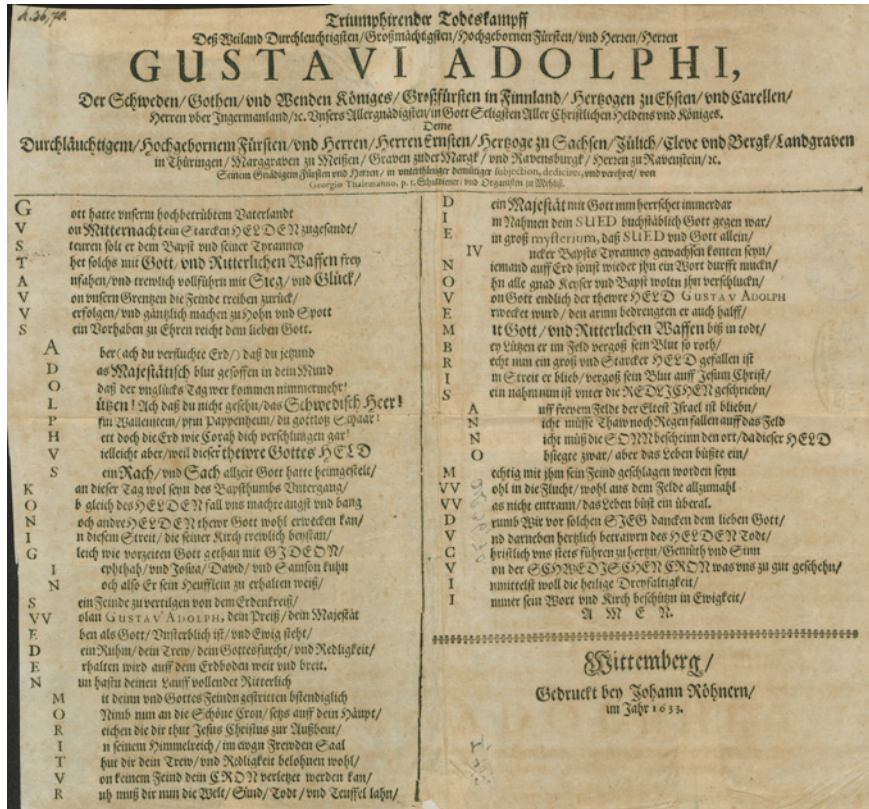 Triumphirender Todeskampff
Deß Weiland Durchleuchtigsten/Großmächtigsten/Hochgebornen Fürsten/vnd Herren/Herren
GUSTAVI ADOLPHI,
Der Schweden/Gothen/vnd Wenden Königes/Großfürsten in Finnland/Hertzogen zu Ehsten/vnd Carellen/
Herren vber Ingermanland/ꝛc. Vnsers Allergnädigsten/in Gott Seligsten Aller Christlichen Heldens vnd Königes.
Deme
Durchläuchtigem/Hochgebornem Fürsten/vnd Herren/Herren Ernsten/Hertzoge zu Sachsen/Jülich/Cleve vnd Bergk/Landgraven
in Thüringen/Marggraven zu Meißen/Graven zu der Margk/vnd Ravensburgk/Herren zu Ravenstein/ꝛc.
Seinem Gnädigem Fürsten vnd Herren/in vnterthäniger demütiger subjection, dediciret, vnd verehret/von
Georgio Thaiemanno, p. t. Schuldiener/vnd Organisten zu
G ott hatte vnserm hochbetrübtem Vaterlandt
V on Mitternacht ein Starcken HELDEN zugesandt/
S teuren solt er dem Bapst vnd seiner Tyranney
T het solchs mit Gott/vnd Ritterlichen Waffen frey
A nfahen/vnd trewlich vollführn mit Sieg/vnd Glück/
V on vnsern Grentzen die Feinde treiben zurück/
V erfolgen/vnd gäntzlich machen zu Hohn vnd Spott
S ein Vorhaben zu Ehren reicht dem lieben Gott.
A ber (ach du verfluchte Erd/) daß du jetzund
D as Majestätisch blut gesoffen in dein Mund
O daß der vnglücks Tag wer kommen nimmermehr!
L ützen! Ach daß du nicht gesehn/das Schwedisch Heer!
P fui Wallenstein/pfui Pappenheim/du gottloß Schaar!
H ett doch die Erd wie Corah dich verschlungen gar!
V ielleicht aber/weil dieser thewre Gottes HELD
S ein Rach/vnd Sach allzeit Gott hatte heimgestelt/
K an dieser Tag wol seyn des Bapsthumbs Vntergang/
O b gleich des HELDEN fall vns machte angst vnd bang
N och andre HELDEN thewr Gott wohl erwecken kan/
I n diesem Streit/die seiner Kirch trewlich beystan/
G leich wie vorzeiten Gott gethan mit GIDEON/
I ephthah/vnd Josua/David/vnd Samson kuhn
N och also Er sein Heufflein zu erhalten weiß/
S ein Feinde zu vertilgen von dem Erdenkreiß/
VV olan GUSTAV ADOLPH, dein Preiß/dein Majestät
E ben als Gott/Vnsterblich ist/vnd Ewig steht/
D ein Ruhm/dein Trew/dein Gottesfurcht/vnd Redligkeit/
E rhalten wird auff dem Erdboden weit vnd breit.
N un hastu deinen Lauff vollendet Ritterlich
M it deinn vnd Gottes Feindn gestritten bstendiglich
O Nimb nun an die Schöne Cron/setzs auff dein Häupt/
R eichen die dir thut Jesus Christus zur Außbeut/
I n seinem Himmelreich/im ewgn Frewden Saal
T hut dir dein Trew/vnd Redligkeit belohnen wohl/
V on keinem Feind dein CRON verletzet werden kan/
R uh muß dir nun die Welt/Sünd/Todt/vnd Teuffel lahn/
D ein Majestät mit Gott nun herrschet immerdar
I m Nahmen dein SUED buchstäblich Gott gegen war/
E in groß mysterium, daß SUED vnd Gott allein/
IV ncker Bapsts Tyranney gewachsen konten seyn/
N iemand auff Erd sonst wieder jhn ein Wort durfft muckn/
O hn alle gnad Keyser vnd Bapst woltn jhn verschluckn/
V on Gott endlich der thewre HELD GUSTAV ADOLPH
E rwecket wurd/den armn bedrengten er auch halff/
M it Gott/vnd Ritterlichen Waffen biß in todt/
B ey Lützen er im Feld vergoß sein Blut so roth/
R echt nun ein groß vnd Starcker HELD gefallen ist
I m Streit er blieb/vergoß sein Blut auff Jesum Christ/
S ein nahm nun ist vnter die REDLICHEN geschriebn/
A uff frevem Feldt der Eltest Israel ist bliebn/
N icht müsse Thaw noch Regen fallen auff das Feld
N icht müß die SONN bescheinn den ort/da dieser HELD
O bsiegte zwar/aber das Leben büßte ein/
M echtig mit jhm sein Feind geschlagen worden seyn
VV ohl in die Flucht/wohl aus dem Felde allzumahl
VV as nicht entrann/das Leben büst ein überal.
D rumb Wir vor solchen SIEG dancken dem lieben Gott/
V nd darneben hertzlich betrawrn des HELDEN Todt/
C hristlich vns stets führen zu hertzn/Gemüth vnd Sinn
V on der SCHWEDISCHEN CRON was vns zu gut geschehn/
I nmittelst woll die heilige Dreyfaltigkeit/
I mmer sein Wort vnd Kirch beschützn in Ewigkeit/
A M E N.
Wittemberg/
Gedruckt bey Johann Röhnern/
im Jahr 1633.